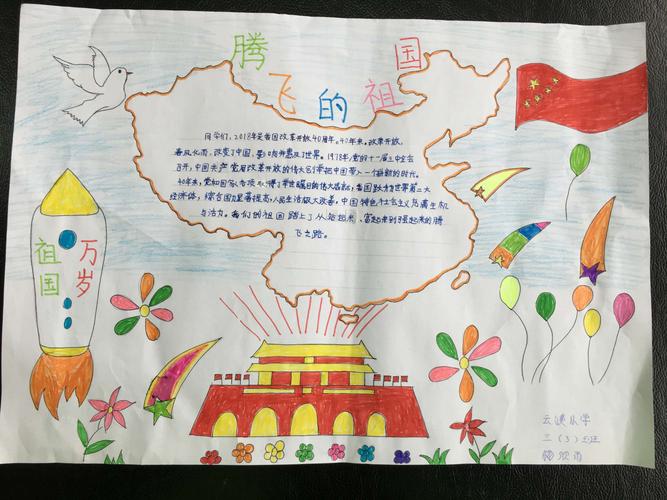 腾飞的祖国
同学们,2018年是我国改革开放40周年。40年来,改革开放,
春风化雨,改变了中国,影响并惠及了世界。1978年,党的十一届三中全会
召开,中国共产党用改革开放的伟大宣言把中国带入一个崭新的时代。
40年来,党和国家各项取得了举世瞩目的伟大成就,我国跃升为世界第二大
经济体,综合国力显著提高,人民生活极大改善,中国特色社会主义充满生机
与活力。我们的祖国踏上了从站起来、富起来到强起来的腾
飞之路。
祖国
万岁
云溪小学
三(3)班